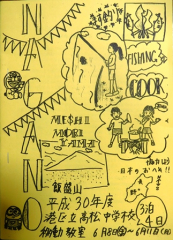 NAGANO
FISHING
COOK
MESHI
MORI
YAMA
飯盛山
平成30年度
港区立高松中学校
移動教室 6月8日(金)~6月11日(月)
3泊
4日